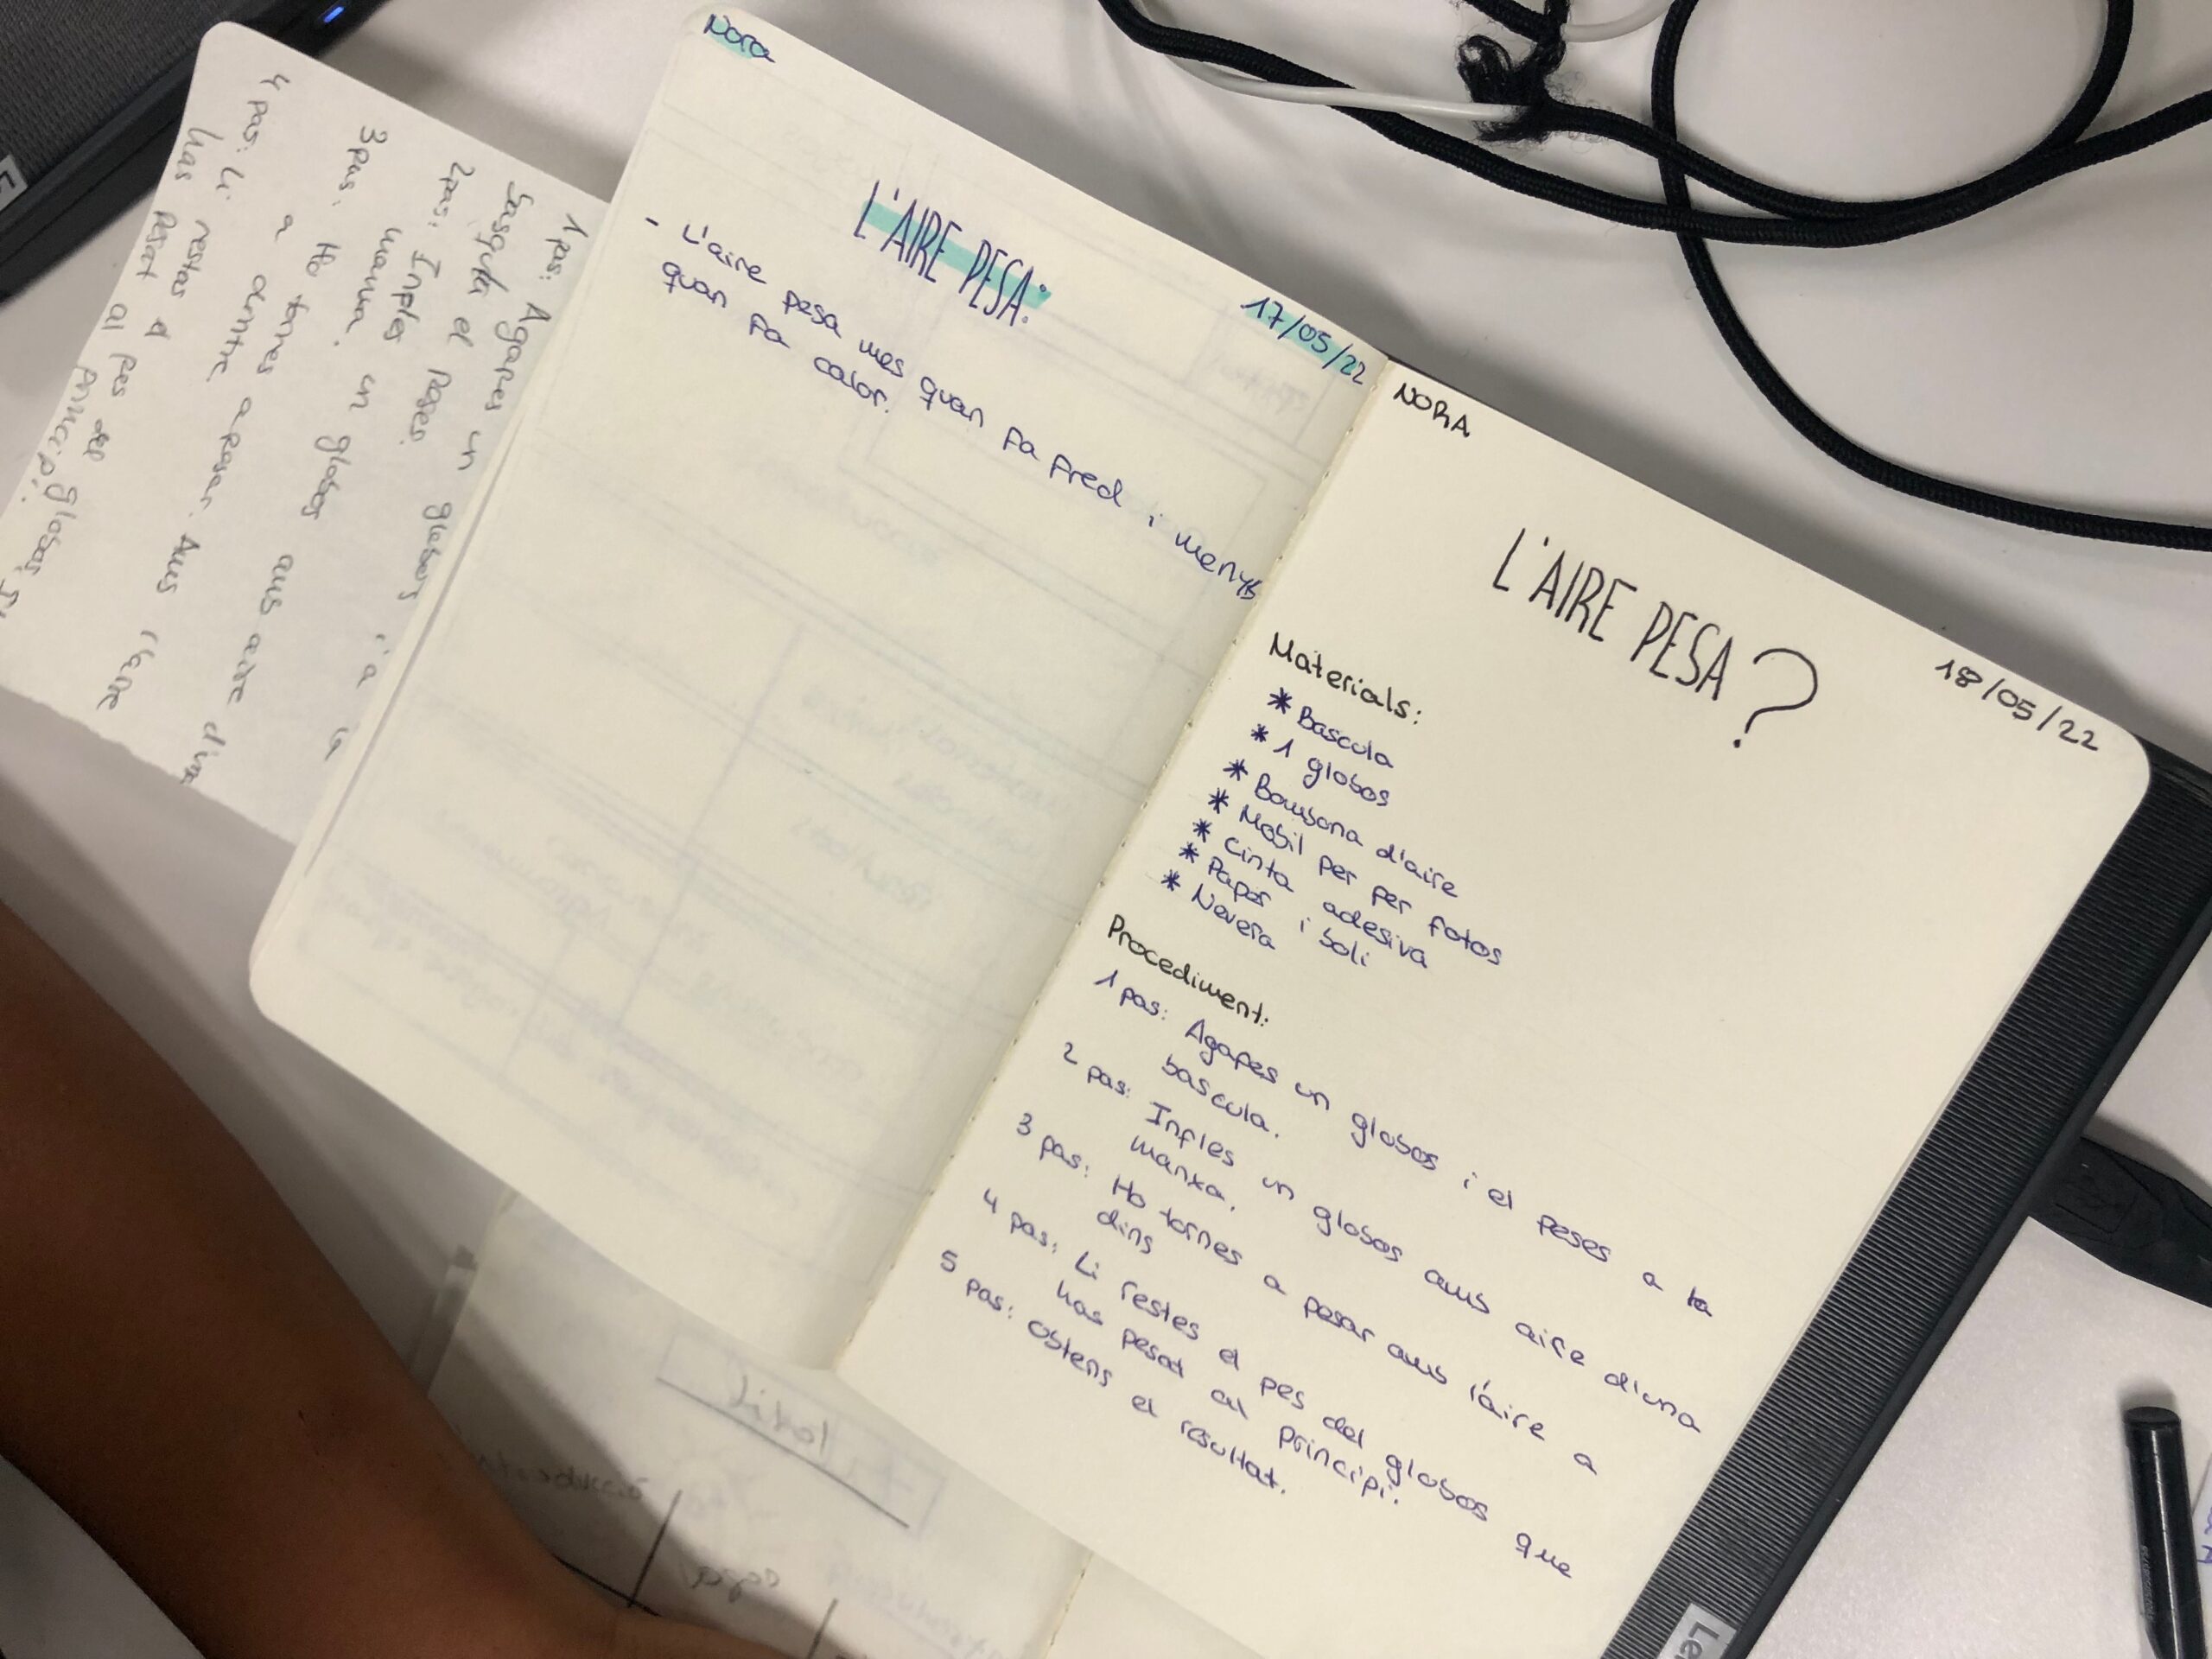 4 pas: Li restes el
has pesat al pes del globos,
principi.
3 pas: Ho tornes a pesar. Ams l'aire
a dintre.
2 pas: Infles un globos aus aire d'una
manxa.
1 pas: Agafes un globos i a la
el peses.
Nora
17/05/22
L'AIRE PESA:
- L'aire pesa mes quan fa fred i menys
quan fa calor.
NORA
18/05/22
L'AIRE PESA?
Materials:
* Bascula
* 1 globos
* Bombona d'aire
* Mobil per per fotos
* Cinta adesiva
* Paper i boli
* Nevera
Procediment:
1 pas: Agafes un globos i el peses a la
bascula.
2 pas: Infles un globos amb aire d'una
manxa.
3 pas: Ho tornes a pesar amb l'aire a
dins
4 pas: Li restes el pes del globos que
has pesat al principi.
5 pas: obtens el resultat.
Títol
Le